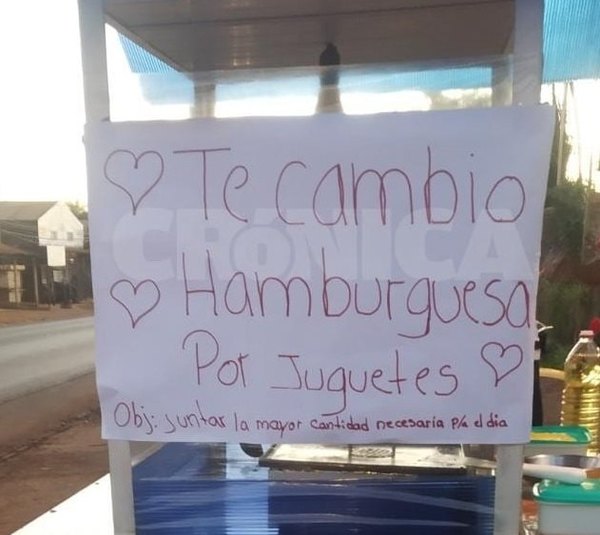 Te cambio
CRÓNICA
Hamburguesa
Por Juguetes
Obj: juntar la mayor cantidad necesaria p/a el dia